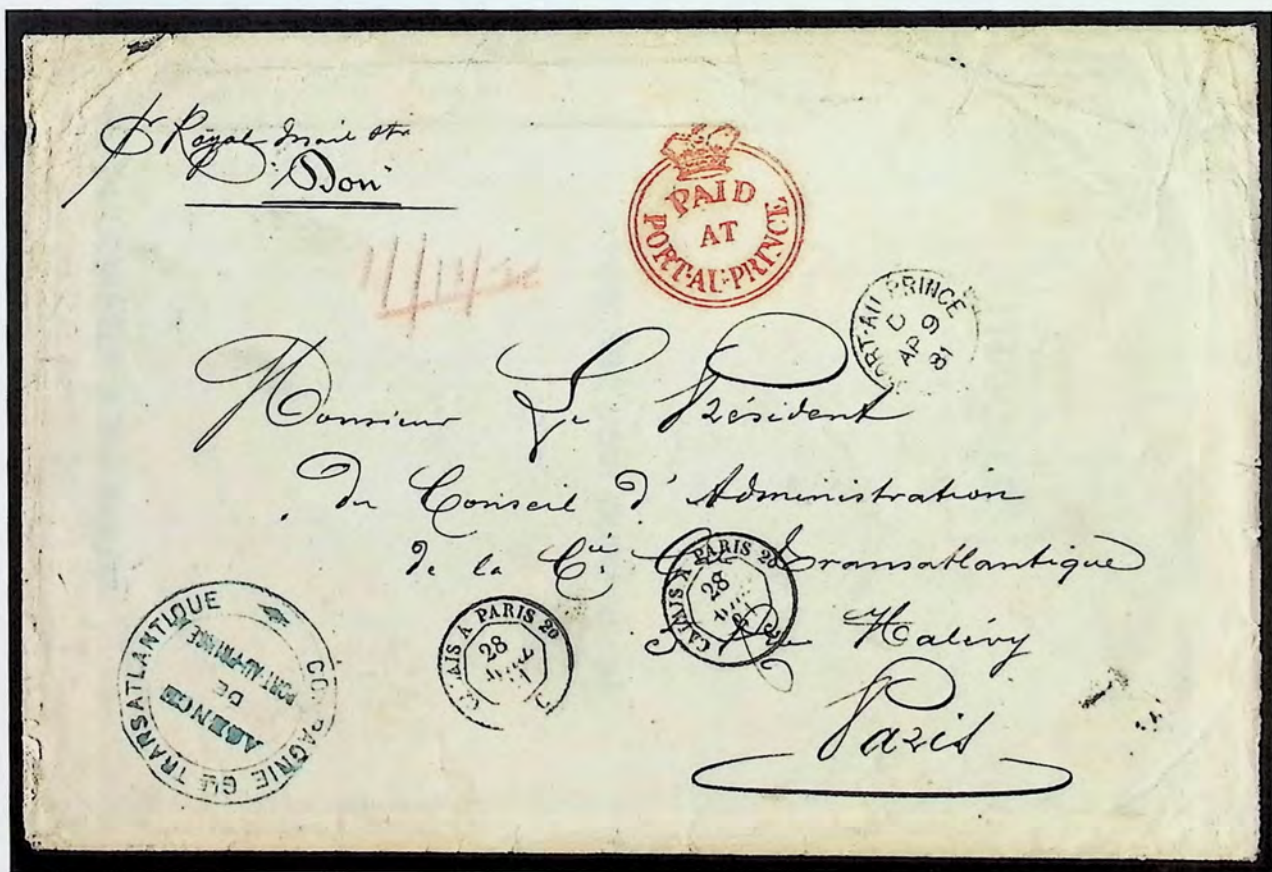 Royal Mail Str
"Don"
PAID
AT
PORT-AU-PRINCE
PORT-AU-PRINCE
C
AP 9
81
Monsieur Le Président
du Conseil d'Administration
de la Cie Gle Transatlantique
CALAIS A PARIS 20
28
AVRIL
81
CALAIS A PARIS 20
28
Halévy
Paris
COMPAGNIE GLE TRANSATLANTIQUE
AGENCE
DE
PORT-AU-PRINCE